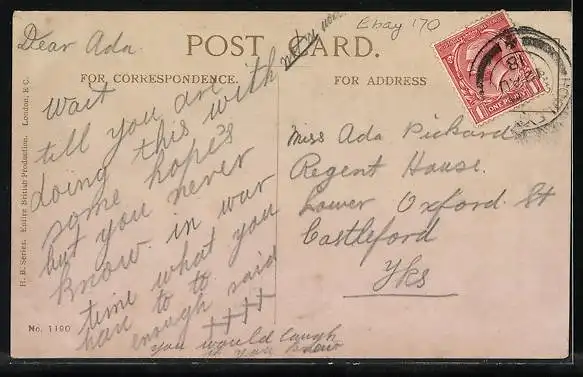 Dear Ada
Ebay 170
POST CARD.
FOR CORRESPONDENCE.
FOR ADDRESS
wait
till you are
doing this with
some hope's
but you never
know in war
time what you
have to to
enough said
++++
you would laugh
if you knew
Miss Ada Pickard
Regent House.
Lower Oxford St
Castleford
Yks
ONE PENNY
18
H. B. Series. Entire British Production. London, E C.
No. 1190